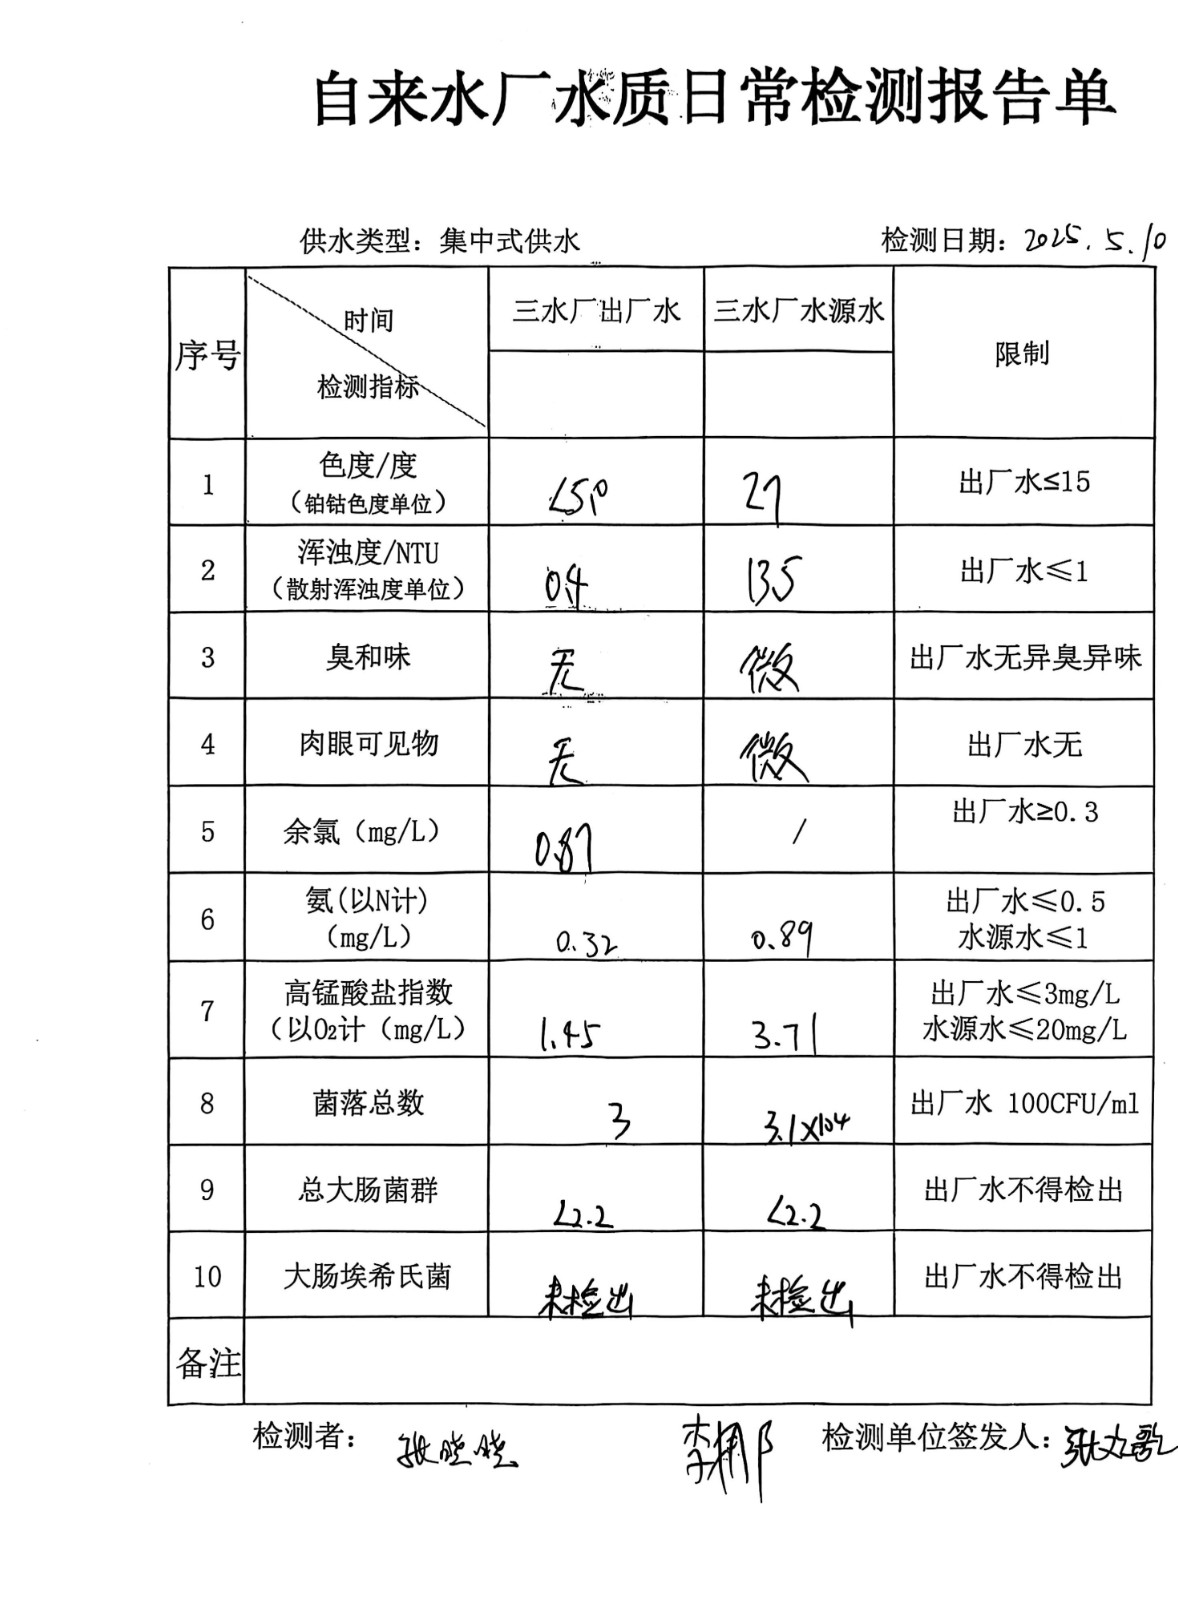 自来水厂水质日常检测报告单
供水类型：集中式供水 检测日期：2025.5.10
序号 时间 检测指标 三水厂出厂水 三水厂水源水 限制
1 色度/度（铂钴色度单位） <5 27 出厂水≤15
2 浑浊度/NTU（散射浑浊度单位） 0.4 13.5 出厂水≤1
3 臭和味 无 微 出厂水无异臭异味
4 肉眼可见物 无 微 出厂水无
5 余氯（mg/L） 0.87 / 出厂水≥0.3
6 氨(以N计)（mg/L） 0.32 0.89 出厂水≤0.5 水源水≤1
7 高锰酸盐指数（以O₂计（mg/L） 1.45 3.71 出厂水≤3mg/L 水源水≤20mg/L
8 菌落总数 3 3.1×10⁴ 出厂水 100CFU/ml
9 总大肠菌群 <2.2 <2.2 出厂水不得检出
10 大肠埃希氏菌 未检出 未检出 出厂水不得检出
备注
检测者：张晓晓 检测单位签发人：张